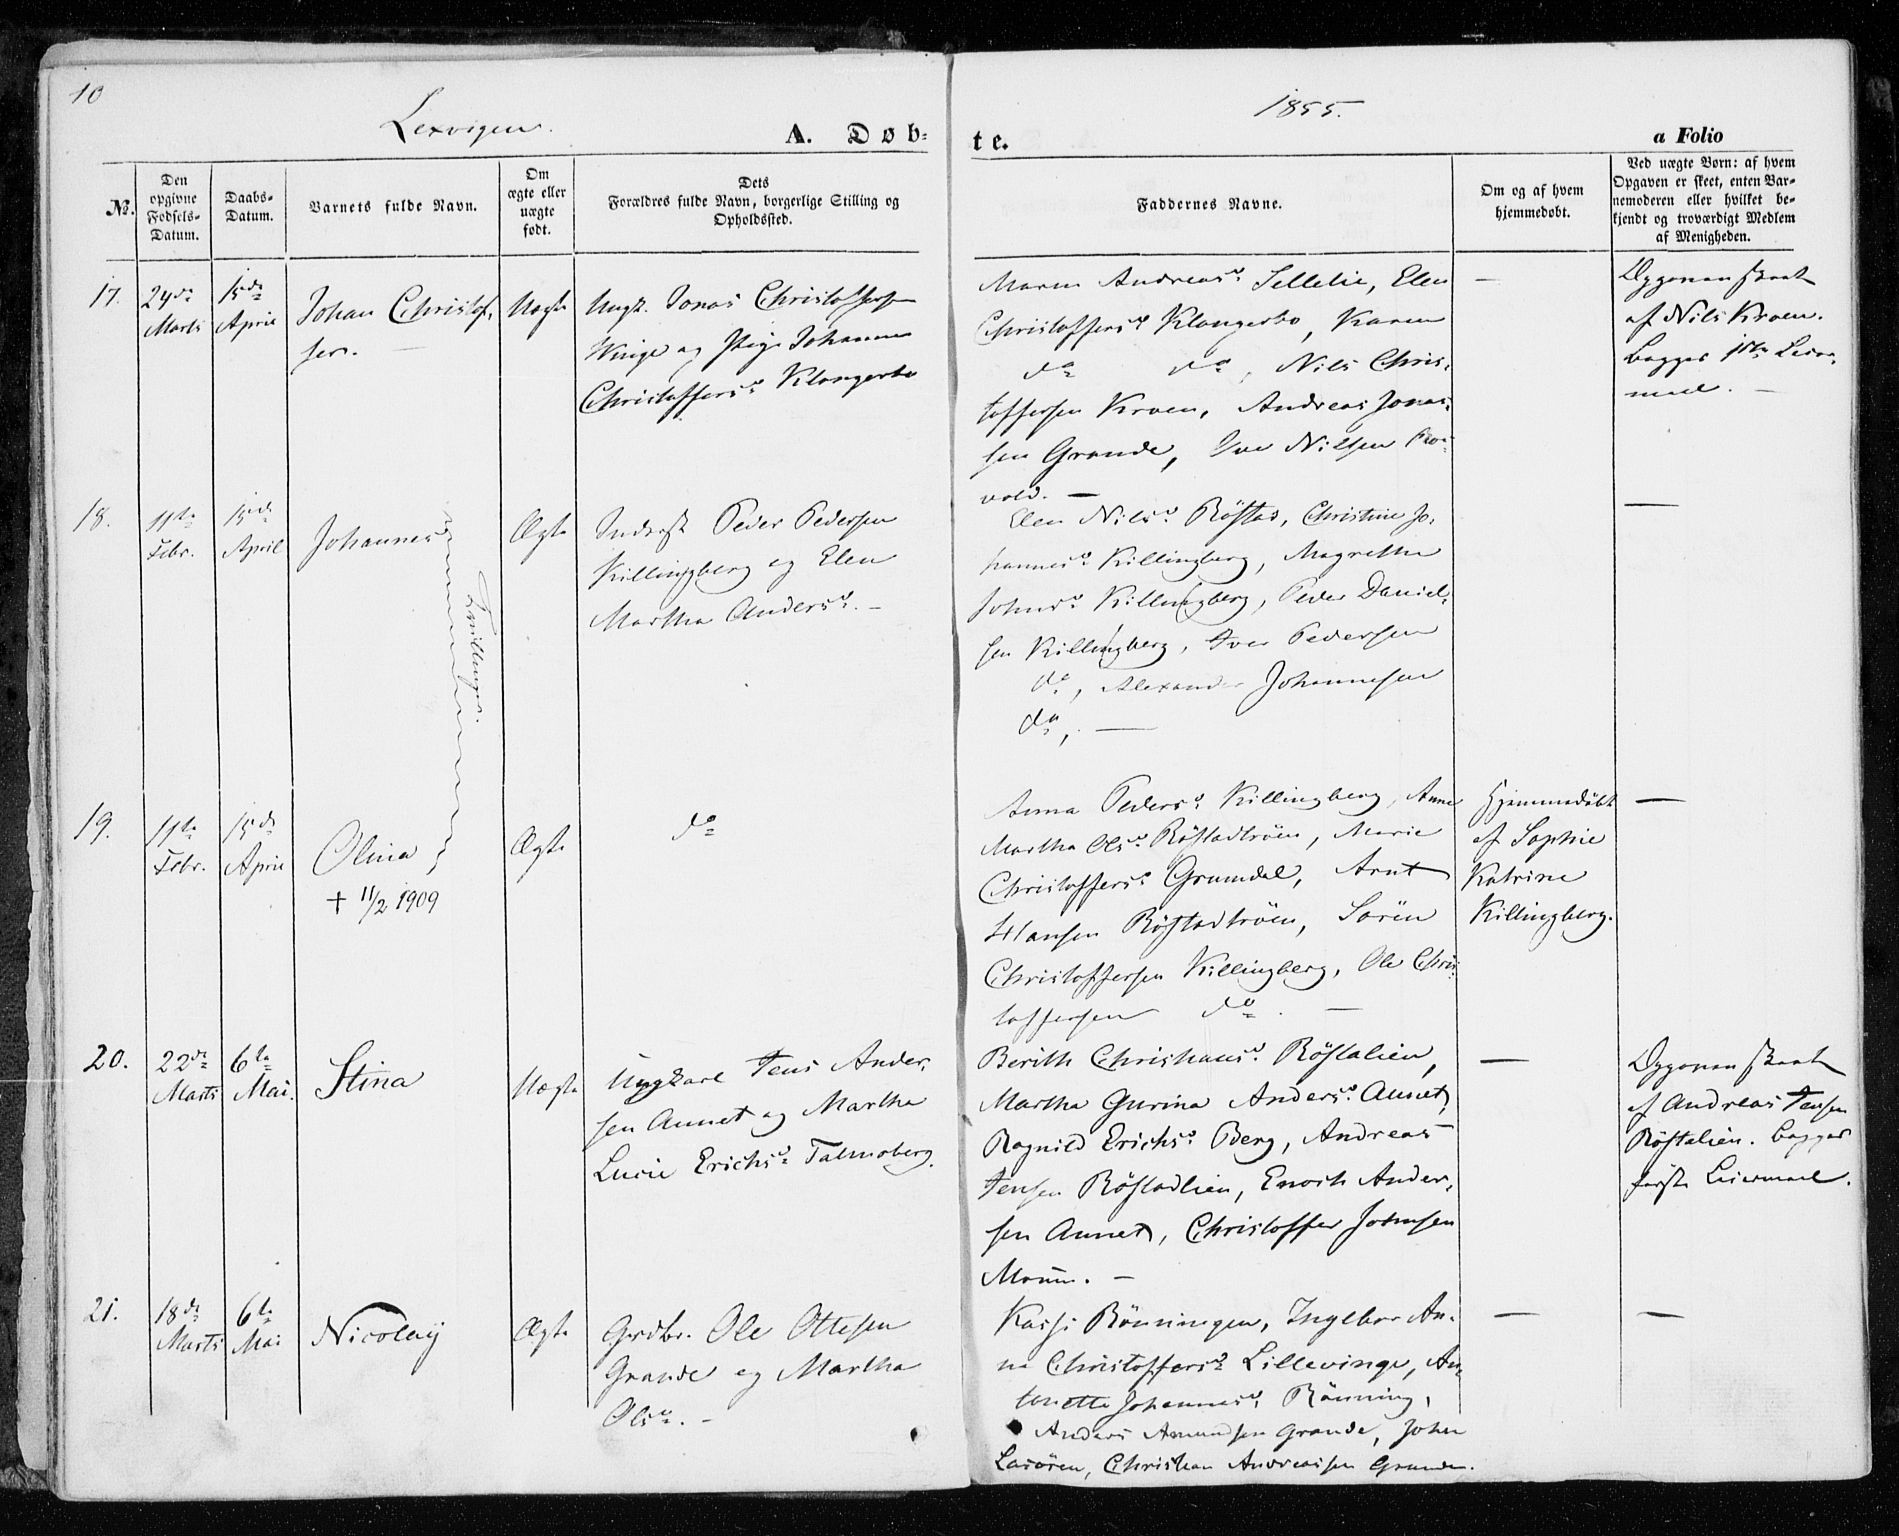 10
Lexvigen.
1855.
A. Døb-
te.
a Folio
No.
Den opgivne Fødsels-Datum.
Daabs-Datum.
Barnets fulde Navn.
Om ægte eller uægte født.
Dets Forældres fulde Navn, borgerlige Stilling og Opholdssted.
Faddernes Navne.
Om og af hvem hjemmedøbt.
Ved uægte Børn: af hvem Opgaven er skeet, enten Barnemoderen eller hvilket bekjendt og troværdigt Medlem af Menigheden.
17.
24de Marts
15de April
Johan Christof-
fer. —
Uægte
Ungk. Jonas Christoffersen
Winge og Pige Johanna
Christoffersd. Klangerbo
Maren Andreasd. Sellelie, Elen
Christoffersd. Klangerbo, Karen
do do, Nils Chris-
toffersen Kroen, Andreas Jonas-
sen Grande, Iver Nilsen
vold. —
—
Opgaven skeet
af Nils Kroen.
Begges 1ste Leier-
maal. —
18.
11te Febr.
15de April
Johannes
Tvillinger.
Ægte
Inderst Peder Pedersen
Killingberg og Elen
Martha Andersd. —
Elen Nilsd. Röstad, Christine Jo-
hannesd. Killingberg, Magrethe
Johnsd. Killingberg, Peder Daniel-
sen Killingberg, Iver Pedersen
do, Alexander Johannesen
do, —
—
19.
11te Febr.
15de April
Olina
+ 11/2 1909
Ægte
do
Anna Pedersd. Killingberg, Anne
Martha Olsd. Röstadtröen, Marie
Christoffersd. Grumdal, Arnt
Hansen Röstadtröen, Sören
Christoffersen Killingberg, Ole Chris-
toffersen do. —
Hjemmedöbt
af Sophie
Katrine
Killingberg.
—
20.
22de Marts
6te Mai.
Stina
Uægte
Ungkarl Jens Ander-
sen Aunet og Martha
Lucie Erichsd. Talmoberg.
Berith Christiansd. Röstalien,
Martha Gurina Andersd. Aunet,
Ragnild Erichsd. Berg, Andreas
Jensen Röstadlien, Enoch Ander-
sen Aunet, Christoffer Johnsen
Moum. —
—
Opgaven skeet
af Andreas Jensen
Röstalien. Begges
förste Leiermaal.
21.
18de Marts
6te Mai
Nicolay
Ægte
Grdbr. Ole Ottesen
Grande og Martha
Olsd. —
Kassi Rönningen, Ingebor An-
na Christoffersd. Lillevinge, An-
tonetta Johannesd. Rönning,
Anders Amundsen Grande, John
Lasören, Christian Andreassen Grande.
—
—